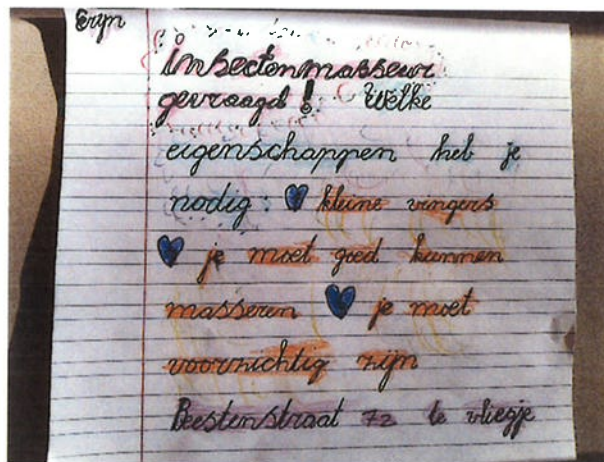 Eryn
insectenmasseur
gevraagd! Welke
eigenschappen heb je
nodig: kleine vingers
je moet goed kunnen
masseren je moet
voorzichtig zijn
Beestenstraat 72 te vliegje